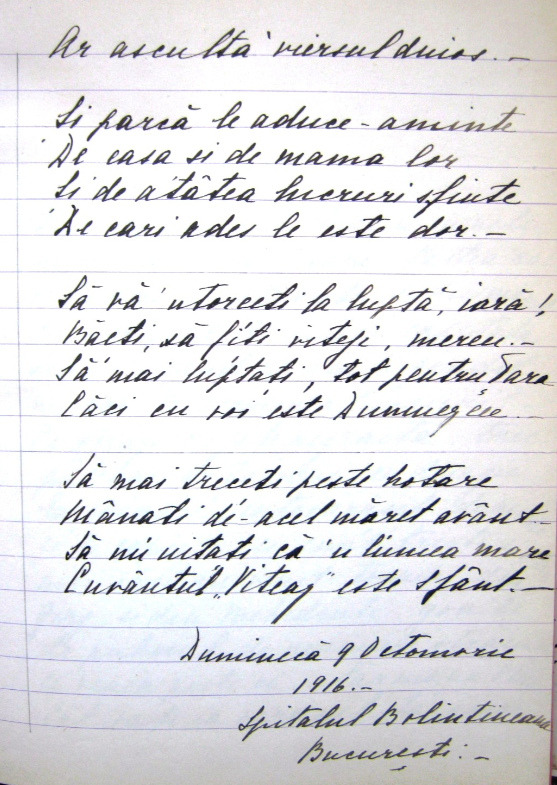 Ar ascultà viersul duios. —
Si parcă le aduce-aminte
De casa si de mama lor
Si de atâtea lucruri sfinte
De cari ades le este dor. —
Să vă 'ntorceti la luptă, iară!
Băeti, să fiti viteji, mereu. —
Să mai luptati, tot pentru Tara
Căci cu voi este Dumnezeu. —
Să mai treceti peste hotare
Mânati de-acel măret avânt. —
Să nu uitati că 'n lumea mare
Cuvântul „Viteaz” este sfânt. —
Duminecă 9 Octomvrie
1916. —
Spitalul Bolintineanu
București. —